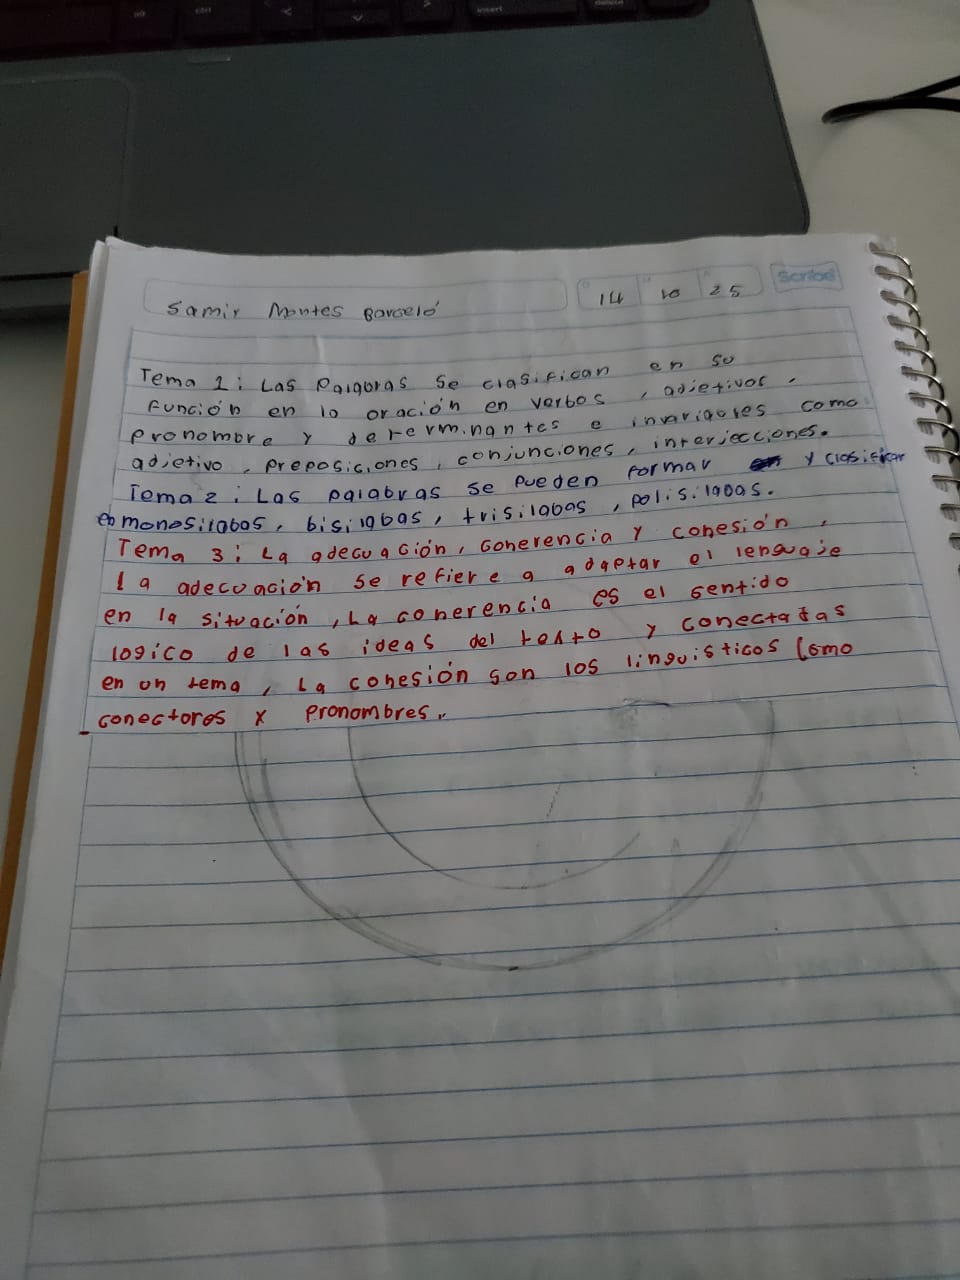 Scribe
14 10 25
Samir Montes Barceló
Tema 1: Las Palabras se clasifican en su
función en la oración en verbos, adjetivos,
pronombre y determinantes e invariables como
adjetivo, preposiciones, conjunciones, interjecciones.
Tema 2: Las palabras se pueden formar y clasificar
en monosilabas, bisilabas, trisilabas, polisilabas.
Tema 3: La adecuación, coherencia y cohesión,
La adecuación se refiere a adaptar el lenguaje
en la situación, La coherencia es el sentido
logico de las ideas del texto y conectadas
en un tema, La cohesión son los linguisticos como
conectores y pronombres.